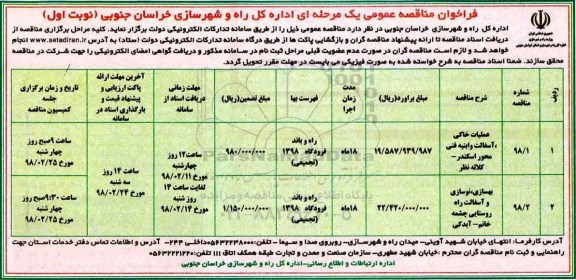 فراخوان مناقصه عمومی یک مرحله ای اداره کل راه و شهرسازی خراسان جنوبی (نوبت اول)
اداره کل راه و شهرسازی خراسان جنوبی در نظر دارد مناقصه عمومی ذیل را از طریق سامانه تدارکات الکترونیکی دولت برگزار نماید. کلیه مراحل برگزاری مناقصه از
دریافت اسناد مناقصه تا ارائه پیشنهاد مناقصه گران و بازگشایی پاکت ها از طریق درگاه سامانه تدارکات الکترونیکی دولت (ستاد) به آدرس www.setadiran.ir انجام
خواهد شد و لازم است مناقصه گران در صورت عدم عضویت قبلی مراحل ثبت نام در سامانه مذکور و دریافت گواهی امضای الکترونیکی را جهت شرکت در مناقصه
محقق سازند. ضمنا اسناد مناقصه به شرح خواسته شده به صورت فیزیکی می بایست در مهلت مقرر تحویل گردد.
ردیف
شماره مناقصه
شرح مناقصه
مبلغ برآورد(ریال)
مدت زمان اجرا
فهرست بها
مبلغ تضمین(ریال)
مهلت زمانی دریافت اسناد از سامانه
آخرین مهلت ارائه پاکت ارزیابی و پیشنهاد قیمت و بارگذاری اسناد در سامانه
تاریخ و زمان برگزاری جلسه کمیسیون مناقصه
۱
۹۸/۱
عملیات خاکی ،آسفالت وابنیه فنی محور اسکندر- کلاته نظر
۱۹/۵۸۷/۹۳۹/۹۸۷
۱۸ماه
راه و باند فرودگاه ۱۳۹۸ (تجمیعی)
۹۸۰/۰۰۰/۰۰۰
ساعت ۱۲روز چهارشنبه مورخ ۹۸/۰۲/۱۱ لغایت ساعت ۱۴ روز شنبه مورخ ۹۸/۰۲/۱۴
ساعت ۱۴ روز سه شنبه مورخ ۹۸/۰۲/۲۴
ساعت ۹صبح روز چهار شنبه مورخ ۹۸/۰۲/۲۵
۲
۹۸/۲
بهسازی،نوسازی و آسفالت راه روستایی چشمه خانم- آبدکی
۲۲/۴۲۰/۰۰۰/۰۰۰
۱۸ماه
راه و باند فرودگاه ۱۳۹۸ (تجمیعی)
۱/۱۵۰/۰۰۰/۰۰۰
ساعت ۹:۳۰صبح روز چهار شنبه مورخ ۹۸/۰۲/۲۵
آدرس کارفرما: انتهای خیابان شهید آوینی- میدان راه و شهرسازی- روبروی صدا و سیما- تلفن:۰۵۶۳۲۲۳۸۰۰۰داخلی ۲۴۴- آدرس و اطلاعات تماس دفتر خدمات استان جهت
راهنمایی و ثبت نام مناقصه گران محترم: بیرجند- خیابان شهید مطهری- سازمان صنعت و معدن و تجارت طبقه همکف اتاق ۱۱۱ تلفن:۰۵۶۳۲۲۲۱۲۲۰
اداره ارتباطات و اطلاع رسانی-اداره کل راه و شهرسازی خراسان جنوبی